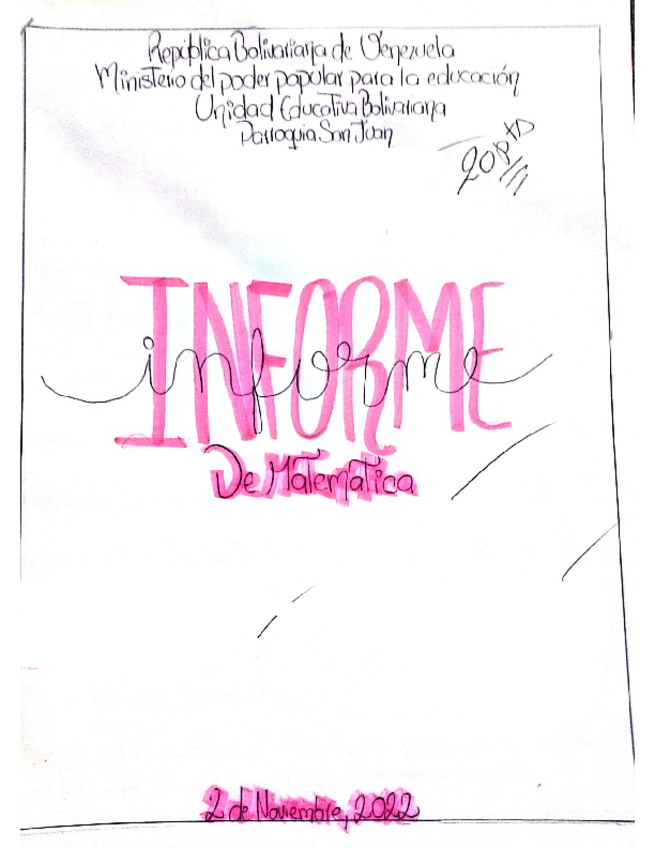 República Bolivariana de Venezuela
Ministerio del poder popular para la educación
Unidad Educativa Bolivariana
Parroquia San Juan
INFORME
informe
De Matematica
2 de Noviembre, 2022